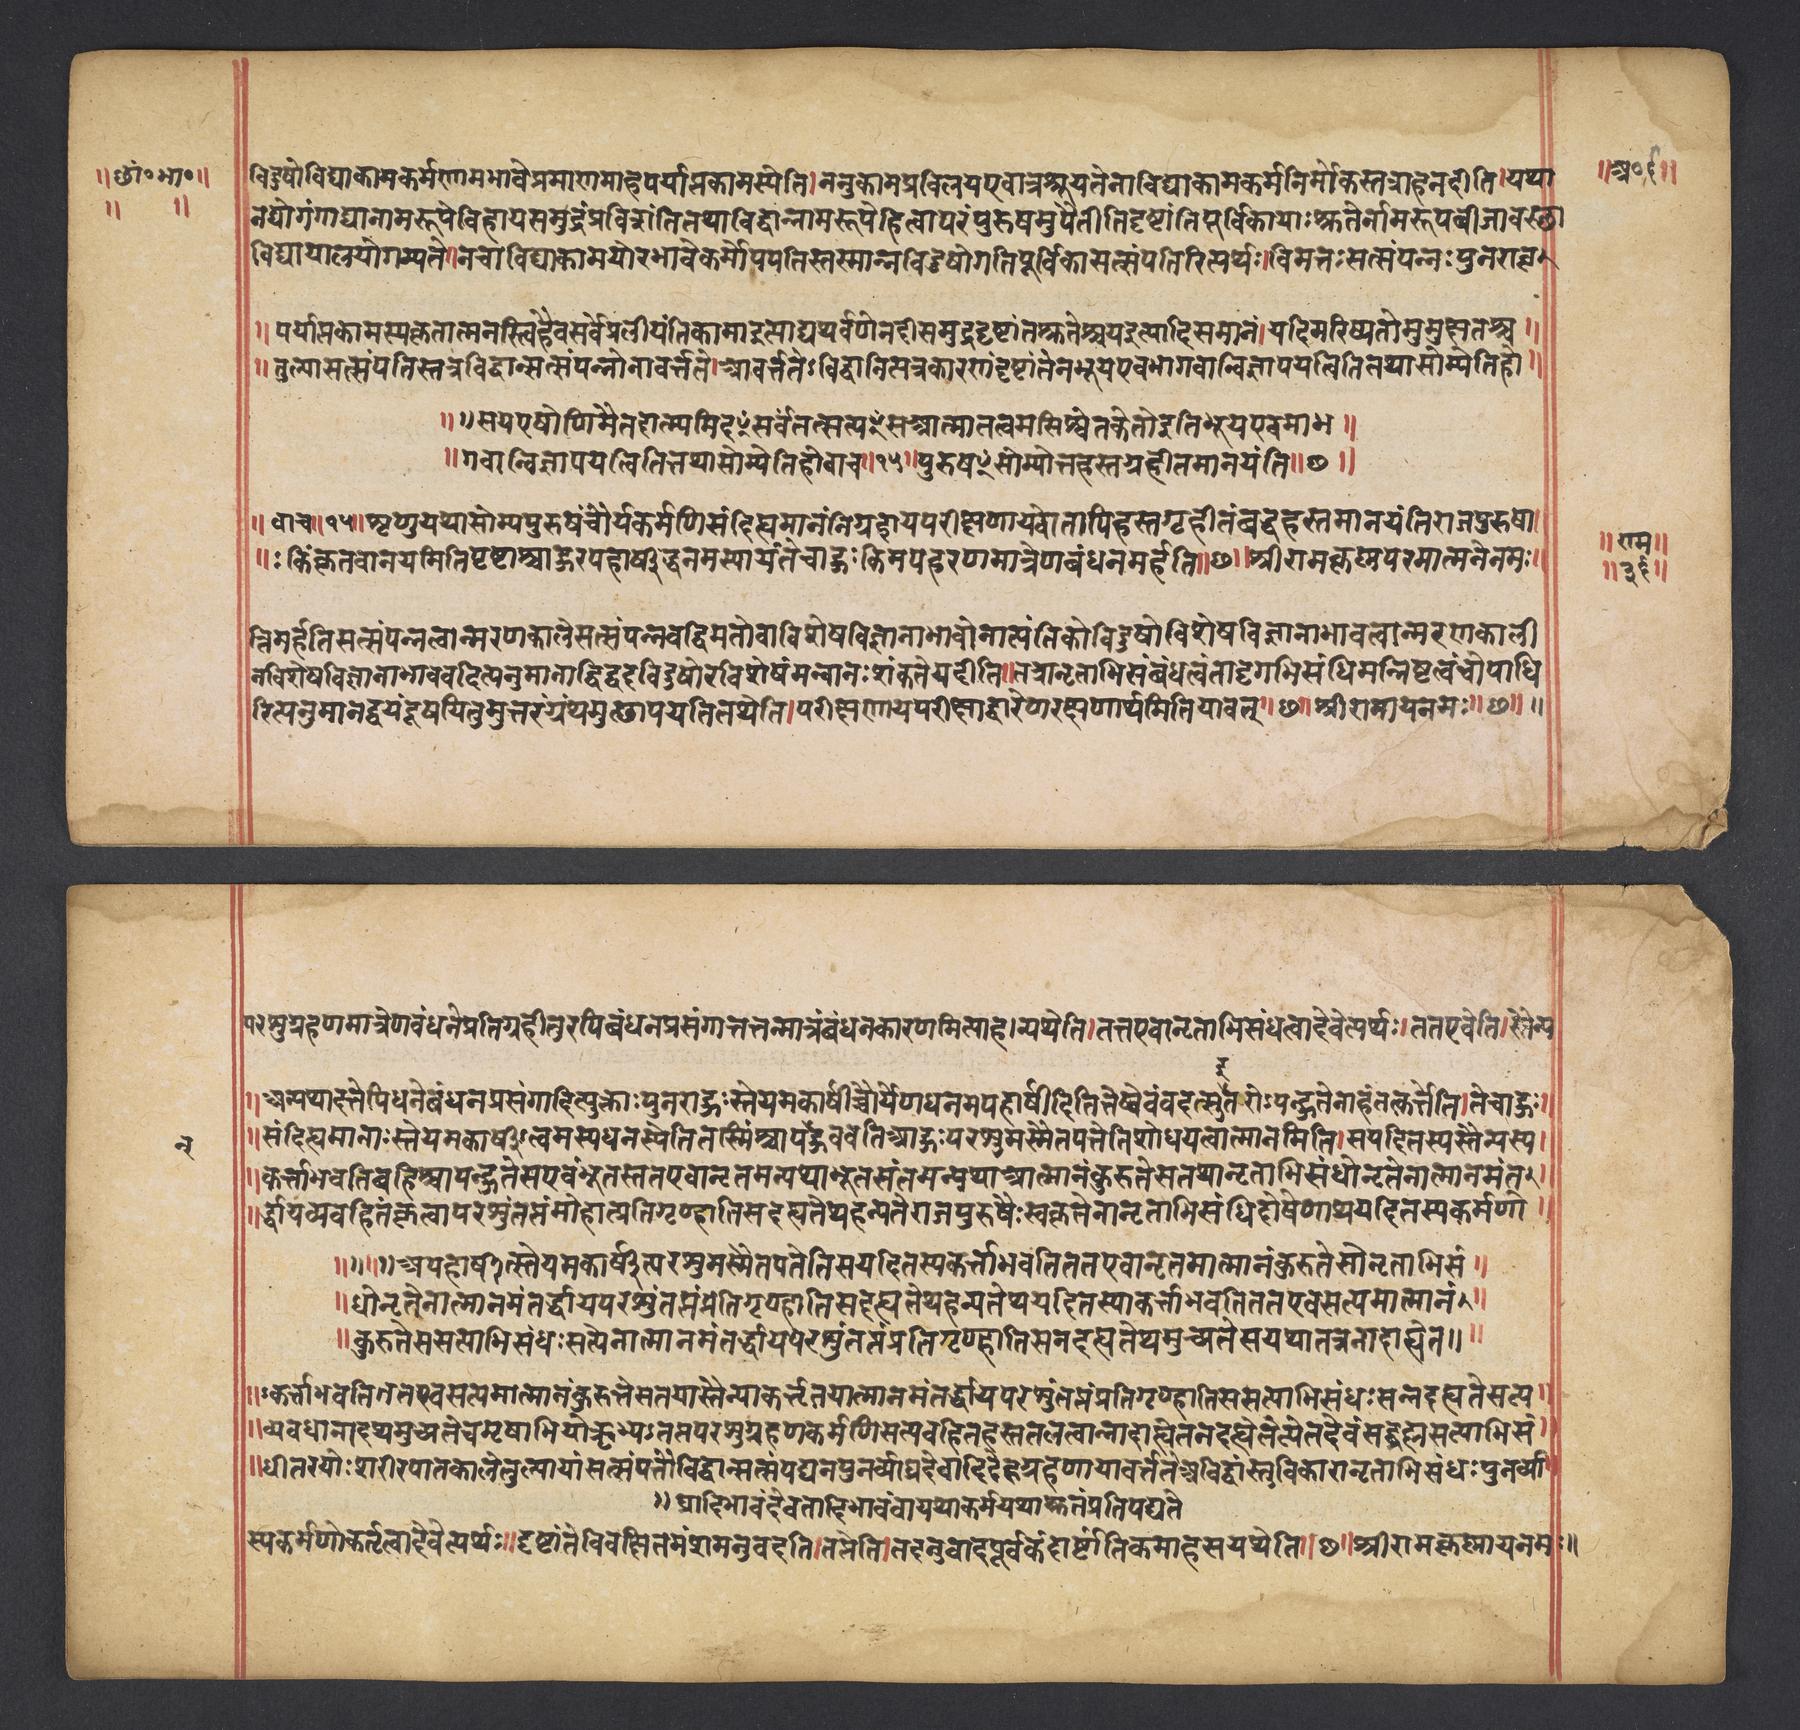 ॥छां॰भा॰॥
॥ ॥
॥अ०६॥
विदुषोविद्याकामकर्मणामभावेप्रमाणमाहपर्याप्तकामस्येति।ननुकामप्रविलयएवात्रश्रूयतेनाविद्याकामकर्मनिर्मोकस्तत्राहनदीति।यथा
नद्योगंगाद्यानामरूपेविहायसमुद्रंप्रविशंतितथाविद्वान्नामरूपेहित्वापरंपुरुषमुपैतीतिदृष्टांतिपूर्विकायाःश्रुतेर्नामरूपबीजावस्था
विद्यायालयोगम्यते॥नचाविद्याकामयोरभावेकर्मोपपत्तिस्तस्मान्नविदुषोगतिपूर्विकासत्संपत्तिरित्यर्थः॥विमतःसत्संपन्नःपुनराव
॥पर्याप्तकामस्यकृतात्मनस्त्विहैवसर्वेप्रलीयंतिकामाइत्याद्यथर्वणेनदीसमुद्रदृष्टांतश्रुतेश्चयइत्यादिसमानं।यदिमरिष्यतोमुमुक्षतश्च॥
॥तुल्यासत्संपत्तिस्तत्रविद्वान्सत्संपन्नोनावर्त्तते।आवर्त्ततेऽविद्वानित्यत्रकारणंदृष्टांतेनभूयएवभागवान्विज्ञापयत्वितितथासोम्येतिहो॥
॥॥सयएषोणिमैतदात्म्यमिदꣳसर्वंतत्सत्यꣳसआत्मातत्वमसिश्वेतकेतोइतिभूयएवमाभ॥
॥गवान्विज्ञापयत्वितितथासोम्येतिहोवाच॥१५॥पुरुषꣳसोम्योतहस्तगृहीतमानयंति॥छ॥
॥वाच॥१५॥शृणुयथासोम्यपुरुषंचौर्यकर्मणिसंदिह्यमानंनिग्रहाययपरीक्षणायवोतापिहस्तगृहीतंबद्धहस्तमानयंतिराजपुरुषा॥
॥ःकिंकृतवानयमितिपृष्टाश्चाहुरपहार्षीद्धनमस्यायंतेचाहुःकिमपहरणमात्रेणबंधनमर्हति॥छ॥श्रीरामकृष्णपरमात्मनेनमः॥
॥राम॥
॥३६॥
त्तिमर्हतिसत्संपन्नत्वान्मरणकालेसत्संपन्नवद्विमतोवाविशेषविज्ञानाभावोनात्यंतिकोविदुषोविशेषविज्ञानाभावत्वान्मरणकाली
नविशेषविज्ञानाभाववदित्यनुमानाद्विद्वदविदुषोरविशेषंमन्वानःशंकतेयदीति॥तत्रानृताभिसंबंधत्वंतादृगभिसंधिमन्निष्टत्वंचोपाधि
रित्यनुमानद्वयंदूषयितुमुत्तरंग्रंथमुत्थापयतितथेति।परीक्षणायपरीक्षाद्वारेणरक्षणार्थमितियावत्॥छ॥श्रीरामायनमः॥छ॥॥
परशुग्रहणमात्रेणबंधनेप्रतिग्रहीतुरपिबंधनप्रसंगात्ततन्मात्रंबंधनकारणमित्याह।न्यथेति।ततएवानृताभिसंधत्वादेवेत्यर्थः।ततएवेति।स्तेन्य
द
॥अन्यथादत्तेपिधनेबंधनप्रसंगादित्युक्ताःपुनराहुःस्तेयमकार्षीच्चौर्येणधनमपहार्षीदितितेष्वेवंवदत्सुतरोऽपन्हुतेनाहंतत्कर्त्तेति।तेचाहुः॥
॥संदिह्यमानाःस्तेयमकार्षीस्त्वमस्यधनस्येतितस्मिंश्चापन्हुवतिआहुःपरशुमस्मैतपतेतिशोधयत्वात्मानमिति।सयदितस्यस्तैन्यस्य।
न्
॥कर्त्ताभवतिबहिश्चापन्हुतेसएवंभूतस्ततएवानृतमन्यथाभूतंसंतमन्यथाआत्मानंकुरुतेसतथानृताभिसंधोनृतेनात्मानमंत॥
॥र्द्धायव्यवहितंकृत्वापरशुंतप्तंमोहात्प्रतिगृण्हातिसदह्यतेथहन्यतेराजपुरुषैःस्वकृतेनानृताभिसंधिदोषेणाथयदितस्यकर्मणो॥
॥॥अपहार्षीत्स्तेयमकार्षीत्परशुमस्मैतपतेतिसयदितस्यकर्त्ताभवतिततएवानृतमात्मानंकुरुतेसोनृताभिसं॥
॥धोनृतेनात्मानमंतर्द्धायपरशुंतप्तंप्रतिगृण्हातिसदह्यतेथहन्यतेथयदितस्याकर्त्ताभवतिततएवसत्यमात्मानं॥
॥कुरुतेससत्याभिसंधःसत्येनात्मानमंतर्द्धायपरशुंतप्तंप्रतिगृण्हातिसनदह्यतेथमुच्यतेसयथातत्रनादाह्येत॥॥
॥ःकर्त्ताभवतिततएवसत्यमात्मानंकुरुतेसतयास्तैन्याकर्त्तृतयात्मानमंतर्द्धायपरशुंतप्तंप्रतिगृण्हातिससत्याभिसंधःसन्नदह्यतेसत्य॥
॥व्यवधानादथमुच्यतेचमृषाभियोक्तृभ्यःतप्तपरशुग्रहणकर्मणिसत्यवहितहस्ततलत्वान्नादाह्येतनदह्येतेत्येतदेवंसद्ब्रह्मसत्याभिसं॥
॥धीतरयोःशरीरपातकालेतुल्यायांसत्संपत्तौविद्वान्सत्संपद्यनपुनर्व्याघ्रदेवादिदेहग्रहणायावर्त्ततेअविद्वांस्तुविकारानृताभिसंधःपुनर्व्या॥
॥घ्रादिभावंदेवतादिभावंवायथाकर्मयथाश्रुतंप्रतिपद्यते
स्यकर्मणोकर्तृत्वादेवेत्यर्थः॥दृष्टांतेविवक्षितमंशमनुवदति।तप्तेति।तदनुवादपूर्वकंदार्ष्टांतिकमाहसयथेति॥छ॥श्रीरामकृष्णायनमः॥